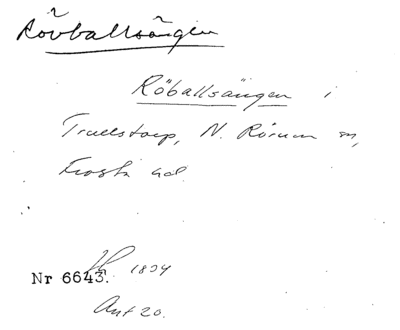 Rövballsängen
Röballsängen i
Truelstorp, N. Rörum sn,
Frosta hd.
Nr 6643. 1834
Ant 20.